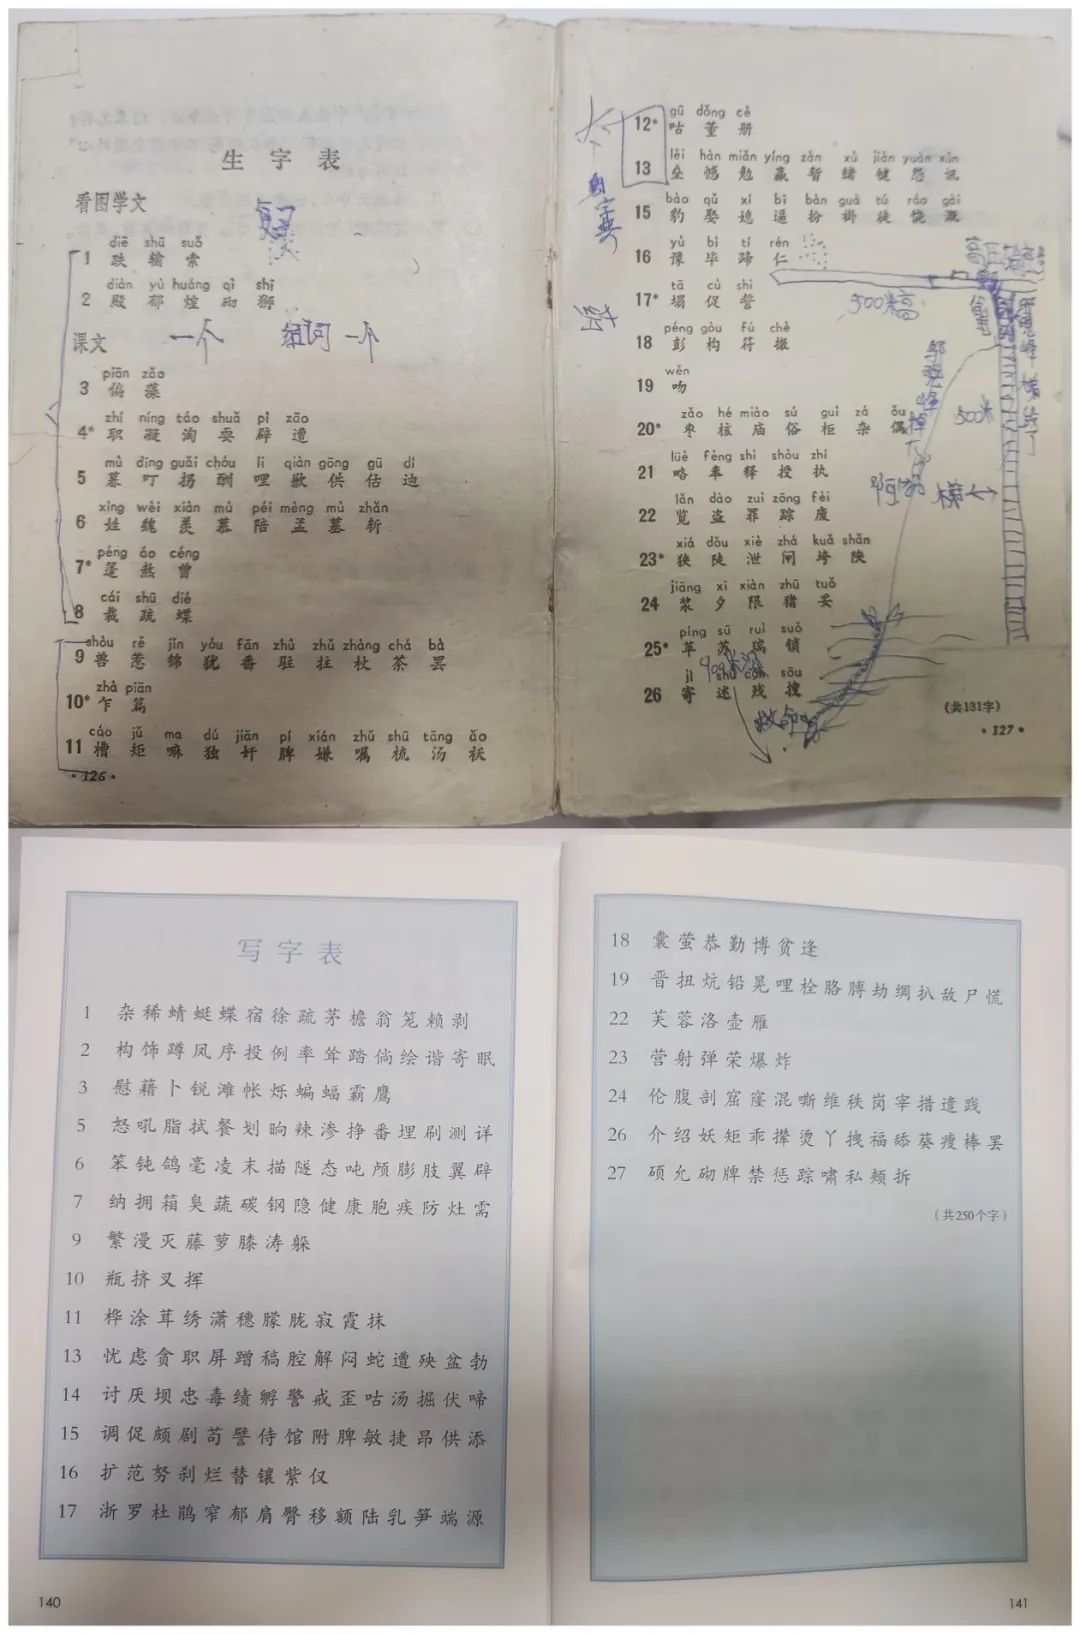 生字表
看图学文
复习
diē shū suǒ
1 跌 输 索
diàn yù huáng qì shī
2 殿 郁 煌 砌 狮
课文
一个 组词 一个
piān zǎo
3 偏 藻
zhí níng táo shuǎ pì zāo
4* 职 凝 淘 耍 辟 遭
mù dīng guǎi chóu li qiàn gōng gū dí
5 暮 叮 拐 酬 哩 歉 供 估 迪
xìng wèi xiàn mù péi mèng mù zhǎn
6 姓 魏 羡 慕 陪 孟 墓 斩
péng áo céng
7* 篷 熬 曾
cái shū dié
8 裁 疏 蝶
shòu rě jǐn yóu fān zhù zhǔ zhàng chá bà
9 兽 惹 锦 犹 番 驻 拄 杖 茶 罢
zhà piān
10* 乍 篇
cáo jǔ ma dú jiān pí xián zhǔ shū tāng ǎo
11 槽 矩 嘛 独 奸 脾 嫌 嘱 梳 汤 袄
·126·
gū dǒng cè
12* 咕 董 册
lěi hàn miǎn yíng zàn xù jiàn yuàn xùn
13 垒 憾 勉 赢 暂 绪 健 怨 讯
bào qǔ xí bī bàn guà tú ráo gài
15 豹 娶 媳 逼 扮 褂 徒 饶 溉
yù bì tí rén
16 豫 毕 蹄 仁
tā cù shì
17* 塌 促 誓
500米高
péng gòu fú chè
18 彭 构 符 撤
wěn
19 吻
zǎo hé miào sú guì zá ǒu
20* 枣 核 庙 俗 柜 杂 偶
500米
lüè fèng shì shòu zhí
21 略 奉 释 授 执
lǎn dào zuì zōng fèi
22 览 盗 罪 踪 废
xiá dǒu xiè zhá kuǎ shǎn
23* 狭 陡 泄 闸 垮 陕
jiāng xī xiàn zhū tuǒ
24 浆 夕 限 猪 妥
píng sū ruì suǒ
25* 苹 苏 瑞 锁
jì shù cán sōu
26 寄 述 残 搜
救命
(共131字)
·127·
写字表
1 杂稀蜻蜓蝶宿徐疏茅檐翁笼赖剥
2 构饰蹲凤序投例率耸踏倘绘谐寄眠
3 慰藉卜锐滩帐烁蝙蝠霸鹰
5 怒吼脂拭餐划晌辣渗挣番埋刷测详
6 笨钝鸽毫凌末描隧态吨颅膨肢翼辟
7 纳拥箱臭蔬碳钢隐健康胞疾防灶需
9 繁漫灭藤萝膝涛躲
10 瓶挤叉挥
11 桦涂茸绣潇穗朦胧寂霞抹
13 忧虑贪职屏蹭稿腔解闷蛇遭殃盆勃
14 讨厌坝忠毒绩孵警戒歪咕汤掘伏啼
15 调促颇剧苟譬侍馆附脾敏捷昂供添
16 扩范努刹烂替镶紫仅
17 浙罗杜鹃窄郁肩臀移额陆乳笋端源
140
18 囊萤恭勤博贫逢
19 晋扭炕铅晃哩栓胳膊劫绸扒敌尸慌
22 芙蓉洛壶雁
23 营射弹荣爆炸
24 伦腹剖窟窿混嘶维秩岗宰措遣践
26 介绍妖矩乖撵烫丫拽福舔葵瘦棒罢
27 硕允砌牌禁惩踪啸私颊拆
（共250个字）
141